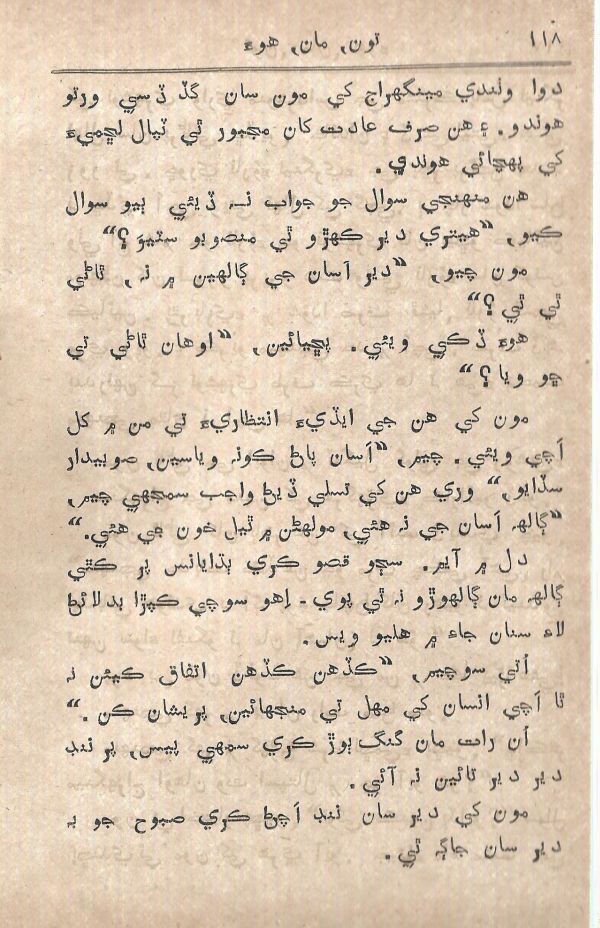 ١١٨ تون, مان, هوءَ
دوا وٺندي مينگهراج کي مون سان گڏ ڏسي ورتو
هوندو. ۽ هن صرف عادت کان مجبور ٿي ٽپال لڇميءَ
کي پهچائي هوندي.
هن منهنجي سوال جو جواب نہ ڏيئي ٻيو سوال
ڪيو, “هيتري دير ڪهڙو ٿي منصوبو سٽيوَ؟“
مون چيو, “دير اَسان جي ڳالهين ۾ نہ, ٿاڻي
تي ٿي؟“
هوءَ ڏڪي ويئي. پڇيائين, “اوهان ٿاڻي تي
ڇو ويا؟“
مون کي هن جي ايڏيءَ انتظاريءَ تي من ۾ کل
اَچي ويئي. چيم, “اَسان پاڻ ڪونہ وياسين, صوبيدار
سڏايو,“ وري هن کي تسلي ڏيڻ واجب سمجهي چيم,
“ڳالهہ اَسان جي نہ هئي, مولهڻ ۾ ٿيل خون جي هئي.“
دل ۾ آيم. سڄو قصو ڪري ٻڌايانس پر ڪٿي
ڳالهہ مان ڳالهوڙو نہ ٿي پوي ـ اِهو سوچي ڪپڙا بدلائڻ
لاءِ سنان جاءِ ۾ هليو ويس.
اُتي سوچيم, “ڪڏهن ڪڏهن اتفاق ڪيئن نہ
ٿا اَچي انسان کي مهل تي منجهائين, پريشان ڪن.“
اُن رات مان گنگ ٻوڙ ڪري سمهي پيس, پر ننڊ
دير دير تائين نہ آئي.
مون کي دير سان ننڊ اَچڻ ڪري صبوح جو بہ
دير سان جاڳہ ٿي.